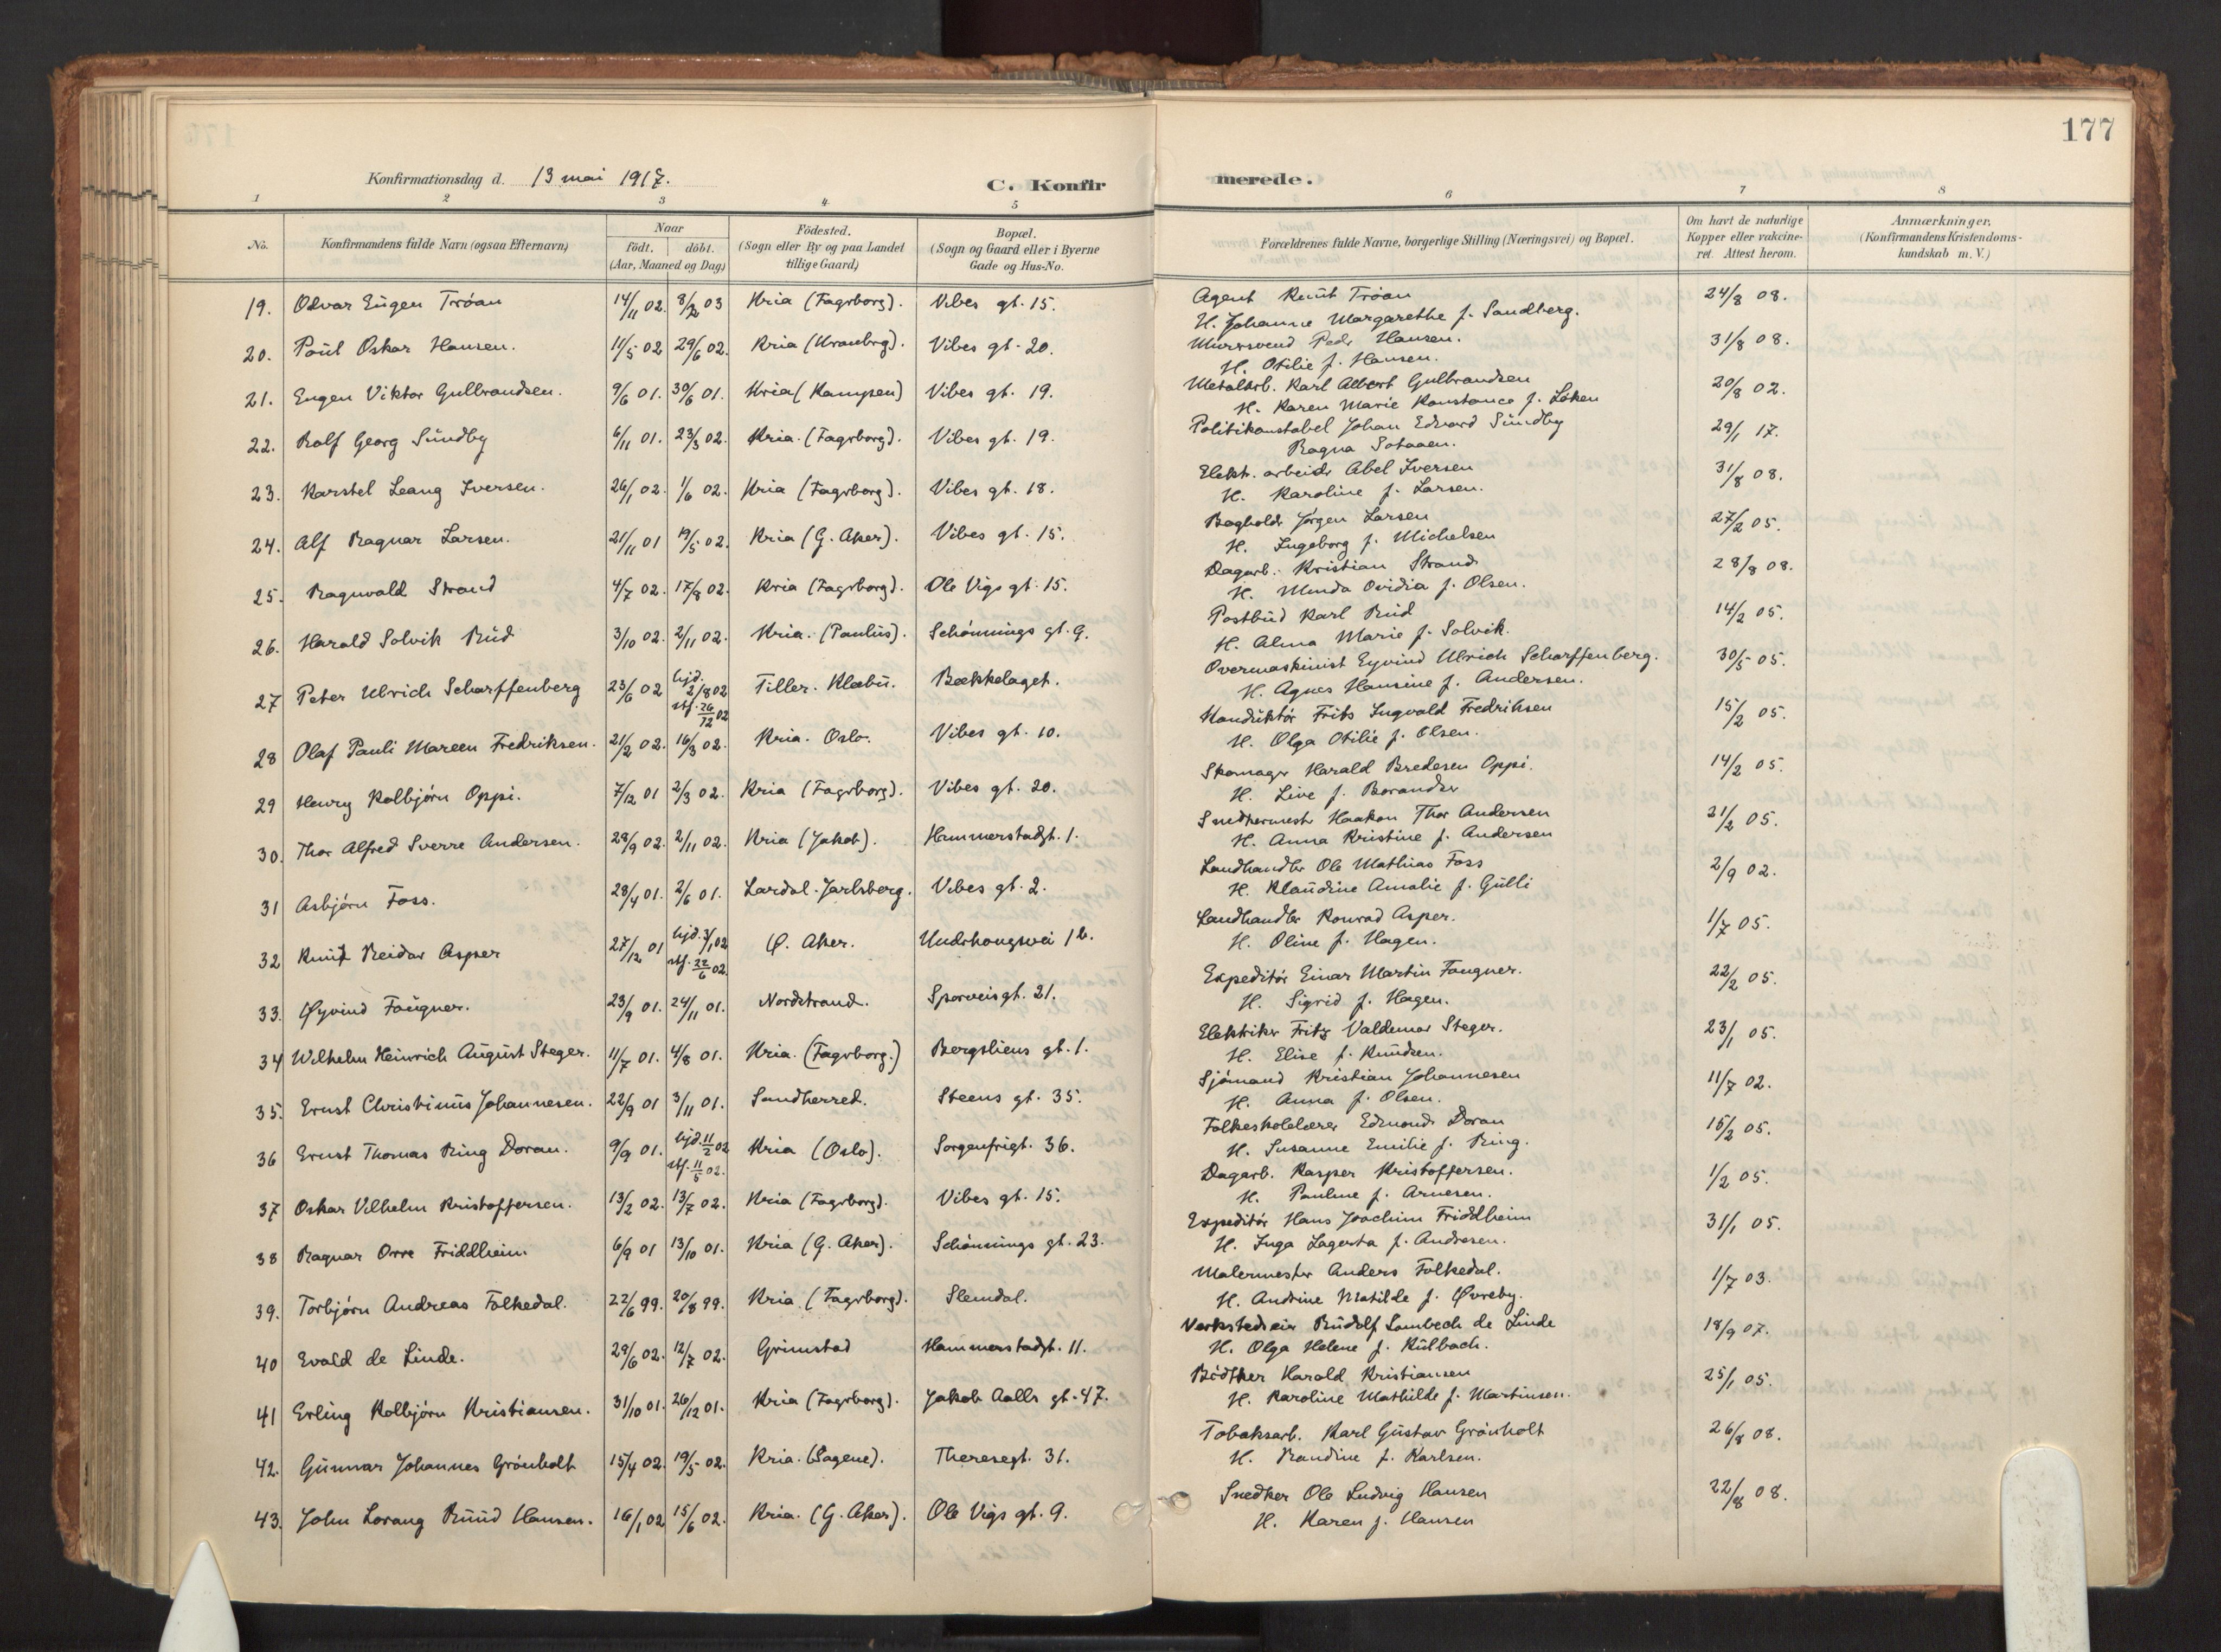 177
Konfirmationsdag d. 13 mai 1917. C. Konfirmerede.
1 2 3 4 5 6 7 8
No. Konfirmandens fulde Navn (ogsaa Efternavn) Naar födt. döbt. (Aar, Maaned og Dag) Födested. (Sogn eller By og paa Landet tillige Gaard) Bopæl. (Sogn og Gaard eller i Byerne Gade og Hus-No. Forældrenes fulde Navne, borgerlige Stilling (Næringsvei) og Bopæl. Om havt de naturlige Kopper eller vakcineret. Attest herom. Anmærkninger. (Konfirmandens Kristendomskundskab m. V.)
19. Odvar Eugen Tróan 14/11 02. 8/2 03 Kria (Fagrborg). Vibes gt. 15. Agent Knut Tróan 24/8 08.
H. Johanne Margarethe f. Sandberg.
20. Paul Oskar Hansen. 11/5 02 29/6 02. Kria (Uranbrg). Vibes gt. 20. Murrsvend Pedr Hansen. 31/8 08.
H. Otilie f. Hansen.
21. Eugen Viktor Gulbrandsen. 9/6 01. 30/6 01. Kria (Kampen) Vibes gt. 19. Metalarb. Karl Albert Gulbrandsen 20/8 02.
H. Karen Marie Konstance f. Løken
22. Rolf Georg Sundby 6/11 01. 23/3 02. Kria. (Fagrborg). Vibes gt. 19. Politikonstabel Johan Edvard Sundby 29/1 17.
Ragna Sotaaen.
23. Karstel Leang Iversen. 26/1 02. 1/6 02. Kria (Fagrborg). Vibes gt. 18. Elekt. arbeidr Abel Iversen 31/8 08.
H. Karoline f. Larsen.
24. Alf Ragnar Larsen. 21/11 01 19/5 02. Kria (G. Aker). Vibes gt. 15. Bagholdr Jørgen Larsen 27/2 05.
H. Ingeborg f. Michelsen
25. Ragnvald Strand 4/7 02. 17/8 02. Kria (Fagrborg). Ole Vigs gt. 15. Dagarb. Kristian Strand 28/8 08.
H. Minda Ovidia f. Olsen.
26. Harald Solvik Rud 3/10 02. 2/11 02. Kria. (Paulus). Schónnings gt. 9. Postbud Karl Rud 14/2 05.
H. Alma Marie f. Solvik.
27 Peter Ulrich Scharffenberg 23/6 02 hjd. 2/8 02 stf. 26/12 02 Tiller. Klæbu. Bækkelaget. Overmaskinist Eyvind Ulrich Scharffenberg. 30/5 05.
H. Agnes Hansine f. Andersen.
28 Olaf Pauli Mareen Fredriksen. 21/2 02. 16/3 02. Kria. Oslo. Vibes gt. 10. Konduktór Frits Ingvald Fredriksen 15/2 05.
H. Olga Otilie f. Olsen.
29 Henry Kolbjórn Oppi. 7/12 01 2/3 02. Kria (Fagrborg). Vibes gt. 20. Skomagr Harald Bredesen Oppi. 14/2 05.
H. Live f.
30. Thor Alfred Sverre Andersen. 28/9 02. 2/11 02. Kria (Jakob). Hammerstadgt. 1. Snedkermestr Haakon Thor Andersen 21/2 05.
H. Anna Kristine f. Andersen
31 Asbjórn Foss. 28/4 01. 2/6 01. Lardal. Jarlsberg. Vibes gt. 2. Landhandlr Ole Mathias Foss 2/9 02.
H. Klaudine Amalie f. Gulli
32 Knut Reidar Asper 27/12 01 hjd. 3/1 02 stf. 22/6 02. Ø. Aker. Undrhougsvei 12. Landhandlr Konrad Asper. 1/7 05.
H. Oline f. Hagen.
33. Øyvind Faugner. 23/9 01. 24/11 01. Nordstrand. Sporveisgt. 21. Expeditór Einar Martin Faugner. 22/2 05.
H. Sigrid f. Hagen.
34 Wilhelm Heinrich August Steger. 11/7 01. 4/8 01. Kria. (Fagrborg.) Bergsliens gt. 1. Elektrikr Fritz Valdemar Steger. 23/1 05.
H. Elise f. Knudsen.
35. Ernst Christinus Johannesen. 22/9 01 3/11 01. Sandherred. Steens gt. 35. Sjómand Kristian Johannesen 11/7 02.
H. Anna f. Olsen.
36 Ernst Thomas Ring Doran. 9/9 01. hjd. 11/2 02 stf. 11/5 02. Kria (Oslo). Sorgenfrigt. 36. Folkeskolelærer Edmond Doran 15/2 05.
H. Susanne Emilie f. Ring.
37 Oskar Vilhelm Kristoffersen. 13/2 02. 13/7 02. Kria (Fagrborg). Vibes gt. 15. Dagarb. Kasper Kristoffersen. 1/2 05.
H. Pauline f. Arnesen.
38 Ragnar Orre Friddheim 6/9 01 13/10 01. Kria (G. Aker). Schónnings gt. 23. Expeditór Hans Joachim Friddheim 31/1 05.
H. Inga Lagerta f. Andresen.
39. Torbjórn Andreas Folkedal. 22/6 99. 20/8 99. Kria. (Fagrborg). Slemdal. Malermestr Anders Folkedal. 1/7 03.
H. Andrine Matilde f. Øvreby.
40 Evald de Linde. 29/6 02. 12/7 02. Grimstad Hammerstadgt. 11. Verkstedseier Rudolf Lambech de Linde 18/9 07.
H. Olga Helene f. Kulbach.
41 Erling Kolbjórn Kristiansen. 31/10 01. 26/12 01. Kria (Fagrborg). Jakob Aalls gt. 47. Bódker Harald Kristiansen 25/1 05.
H. Karoline Mathilde f. Martinsen.
42. Gunnar Johannes Grónholt 15/4 02. 19/5 02. Kria. (Sagene). Theresegt. 31. Tobaksarb. Karl Gustav Grónholt 26/8 08.
H. Randine f. Karlsen.
43. John Lorang Ruud Hansen. 16/1 02 15/6 02. Kria. (G. Aker). Ole Vigs gt. 9. Snedker Ole Ludvig Hansen 22/8 08.
H. Karen f. Hansen